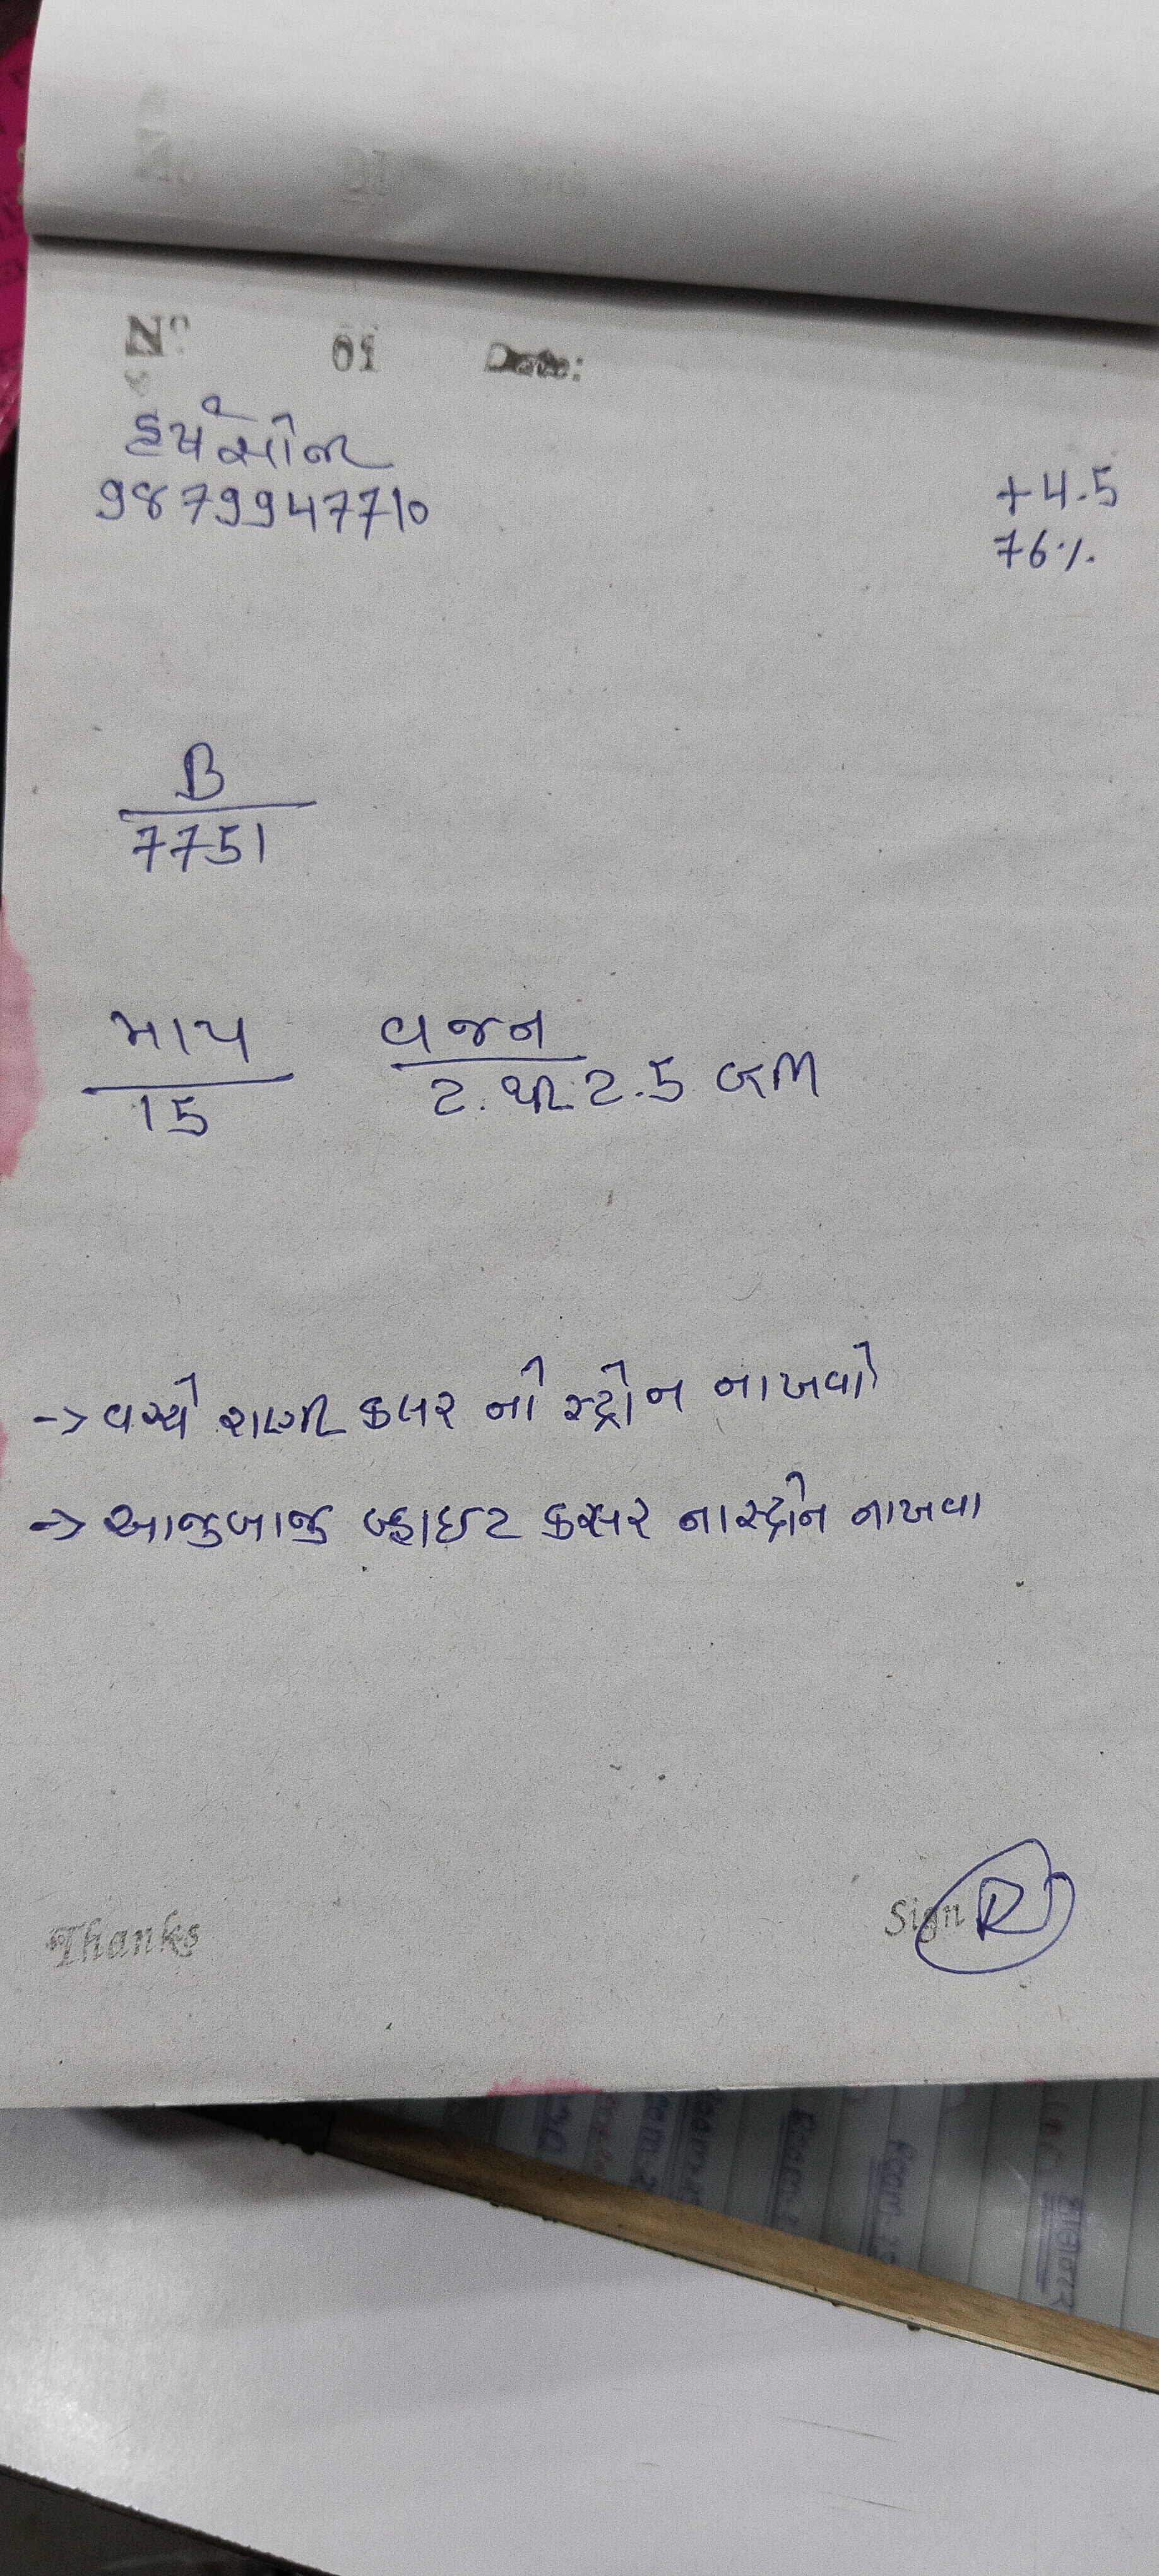 Nº 01 Date:
હર્ષ સોની
9879947710
+4.5
76%
B
7751
માપ વજન
15 2. થી 2.5 ગ્રામ
→ વચ્ચે રાણી કલર નો સ્ટોન નાખવો
→ આજુબાજુ વ્હાઈટ કલર ના સ્ટોન નાખવા
Thanks Sign R